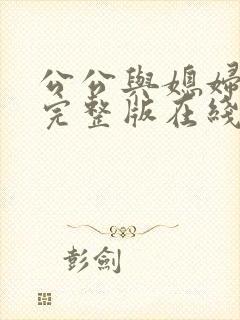 公公與媳婦
完整版在綫
彭劍